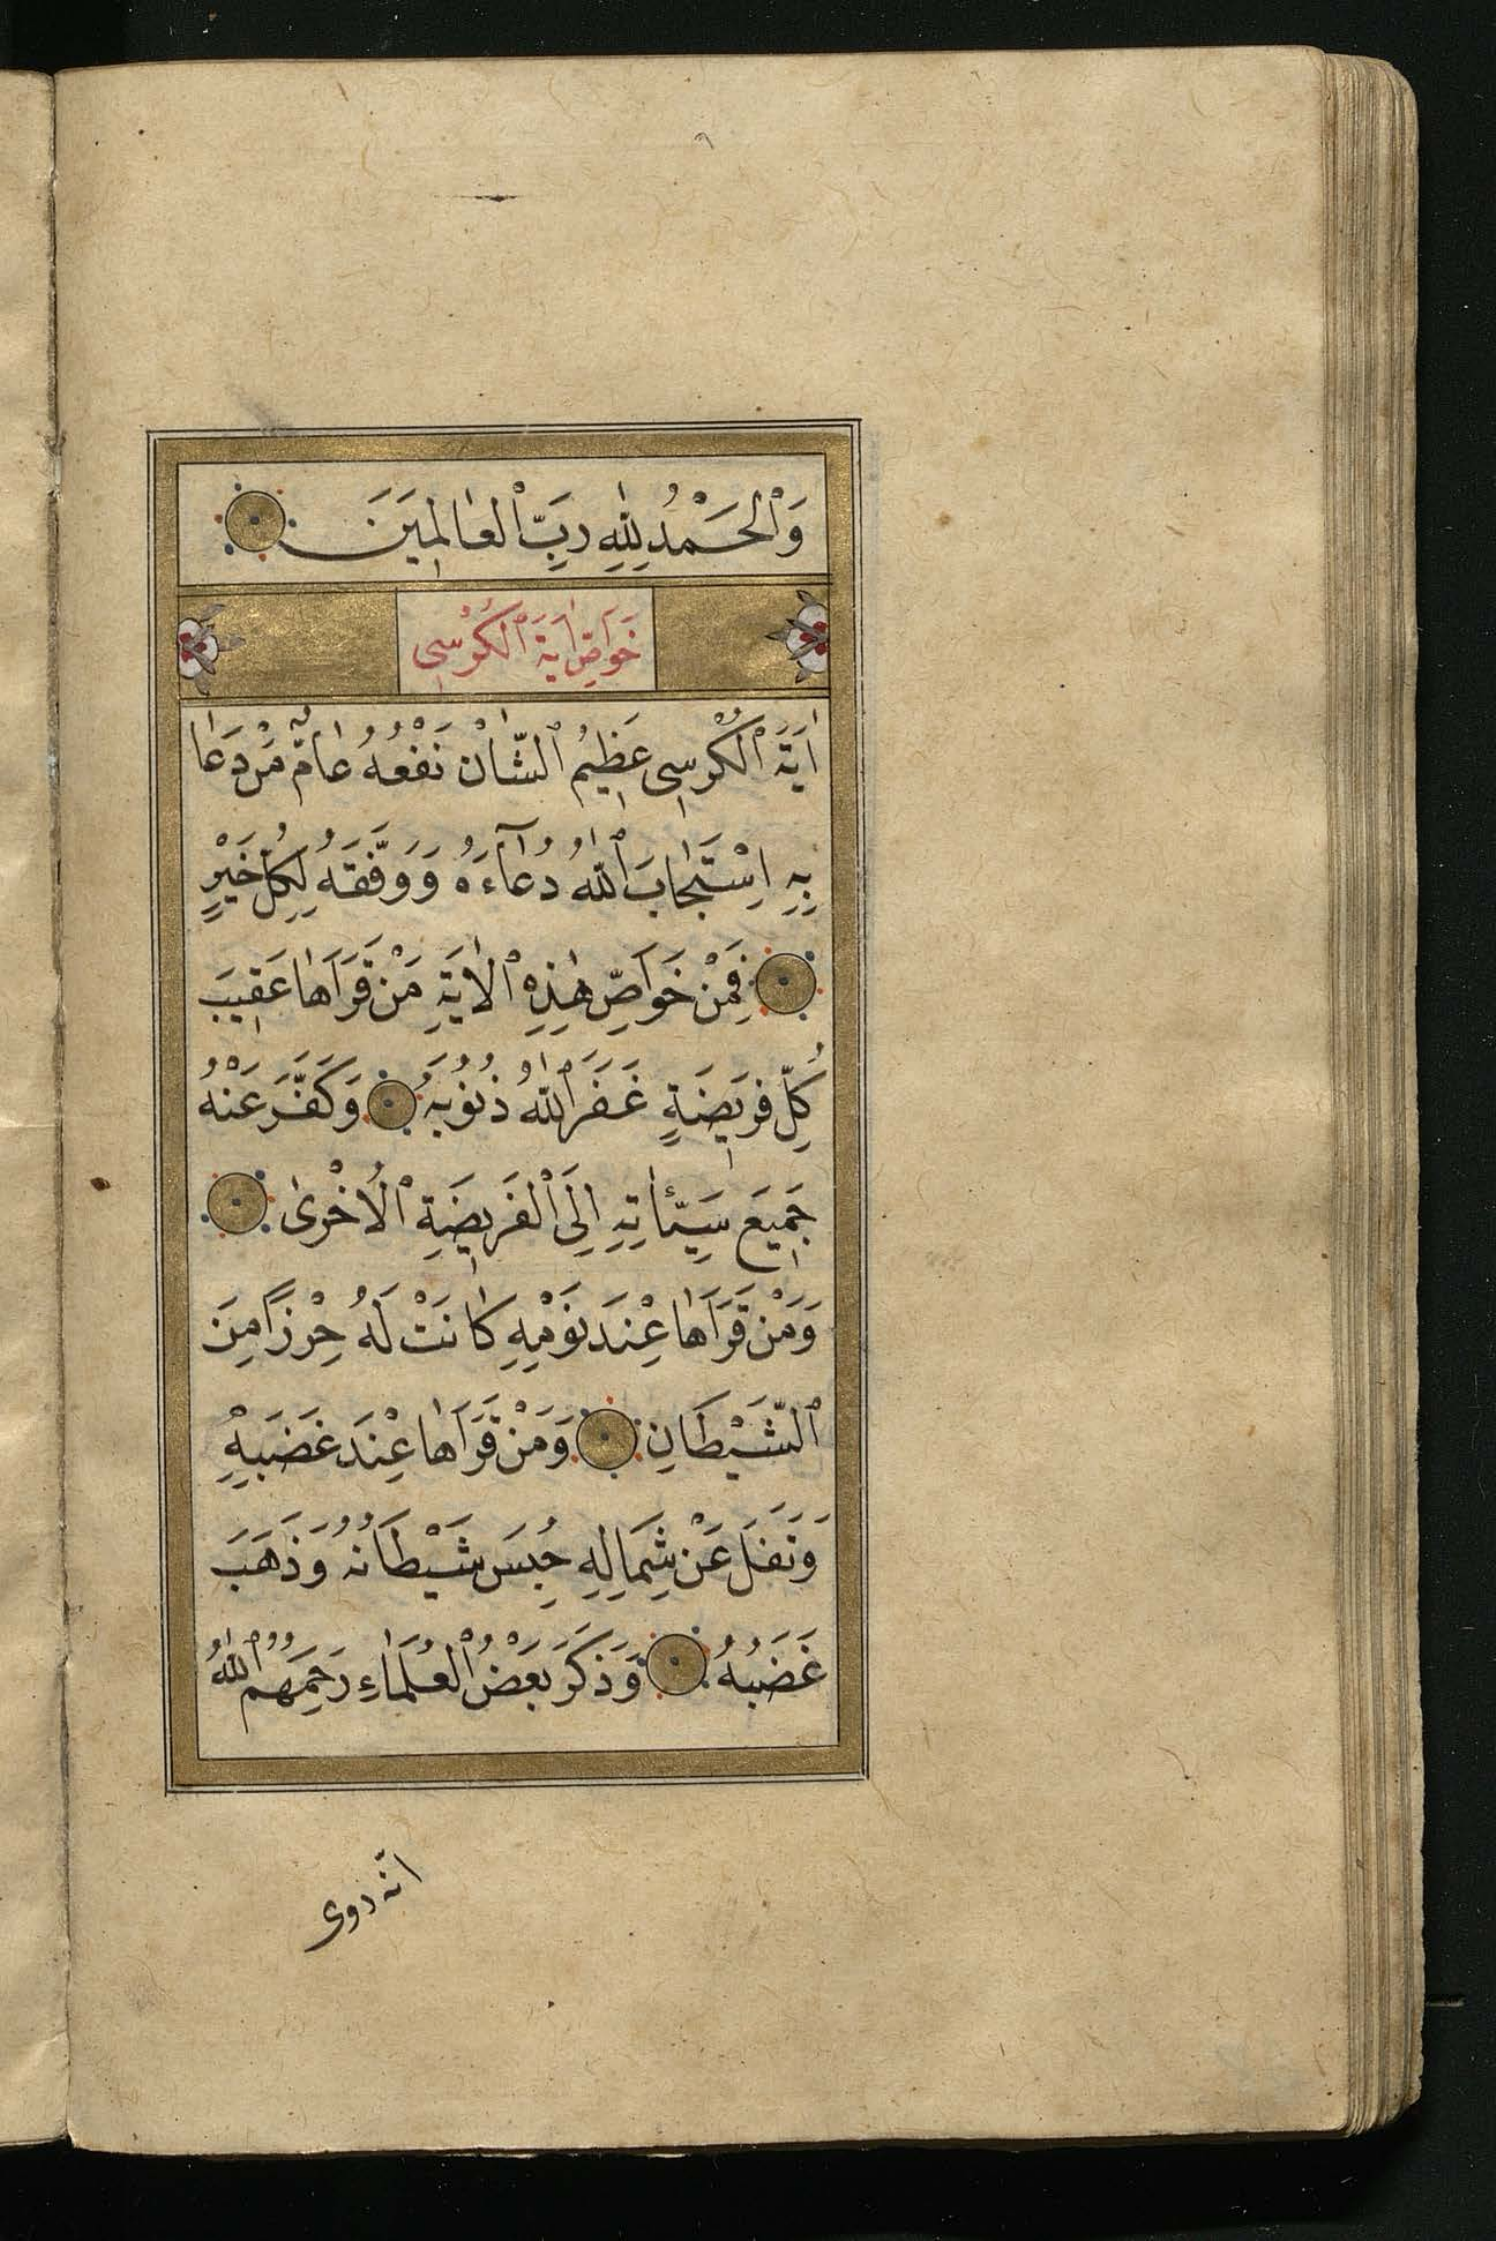 وَٱلْحَمْدُ لِلّٰهِ رَبِّ ٱلْعٰالَمِينَ
خَوٰاصِّ اٰيَةَ ٱلْكُرْسِى
اٰيَةَ ٱلْكُرْسِى عَظِيمُ ٱلشَّأْن نَفْعُهُ عٰامٌّ مَنْ دَعٰا
بِهِ اِسْتَجٰابَ ٱللّٰهُ دُعٰآءَهُ وَوَفَّقَهُ لِكُلِّ خَيْرٍ
فَمِنْ خَوٰاصِّ هٰذِهِ ٱلْاٰيَةِ مَنْ قَرَأَهٰا عَقِيبَ
كُلِّ فَرِيضَةٍ غَفَرَ ٱللّٰهُ ذُنُوبَهُ وَكَفَّرَ عَنْهُ
جَمِيعَ سَيِّئٰاتِهِ اِلَى ٱلْفَرِيضَةِ ٱلْاُخْرىٰ
وَمَنْ قَرَأَهٰا عِنْدَ نَوْمِهِ كٰانَتْ لَهُ حِرْزًا مِنَ
ٱلشَّيْطَانِ وَمَنْ قَرَأَهٰا عِنْدَ غَضَبِهِ
وَتَفَلَ عَنْ شِمَالِهِ حُبِسَ شَيْطَانُهُ وَذَهَبَ
غَضَبُهُ وَذَكَرَ بَعْضُ ٱلْعُلَمٰاءِ رَحِمَهُمُ ٱللّٰهُ
انّه روى